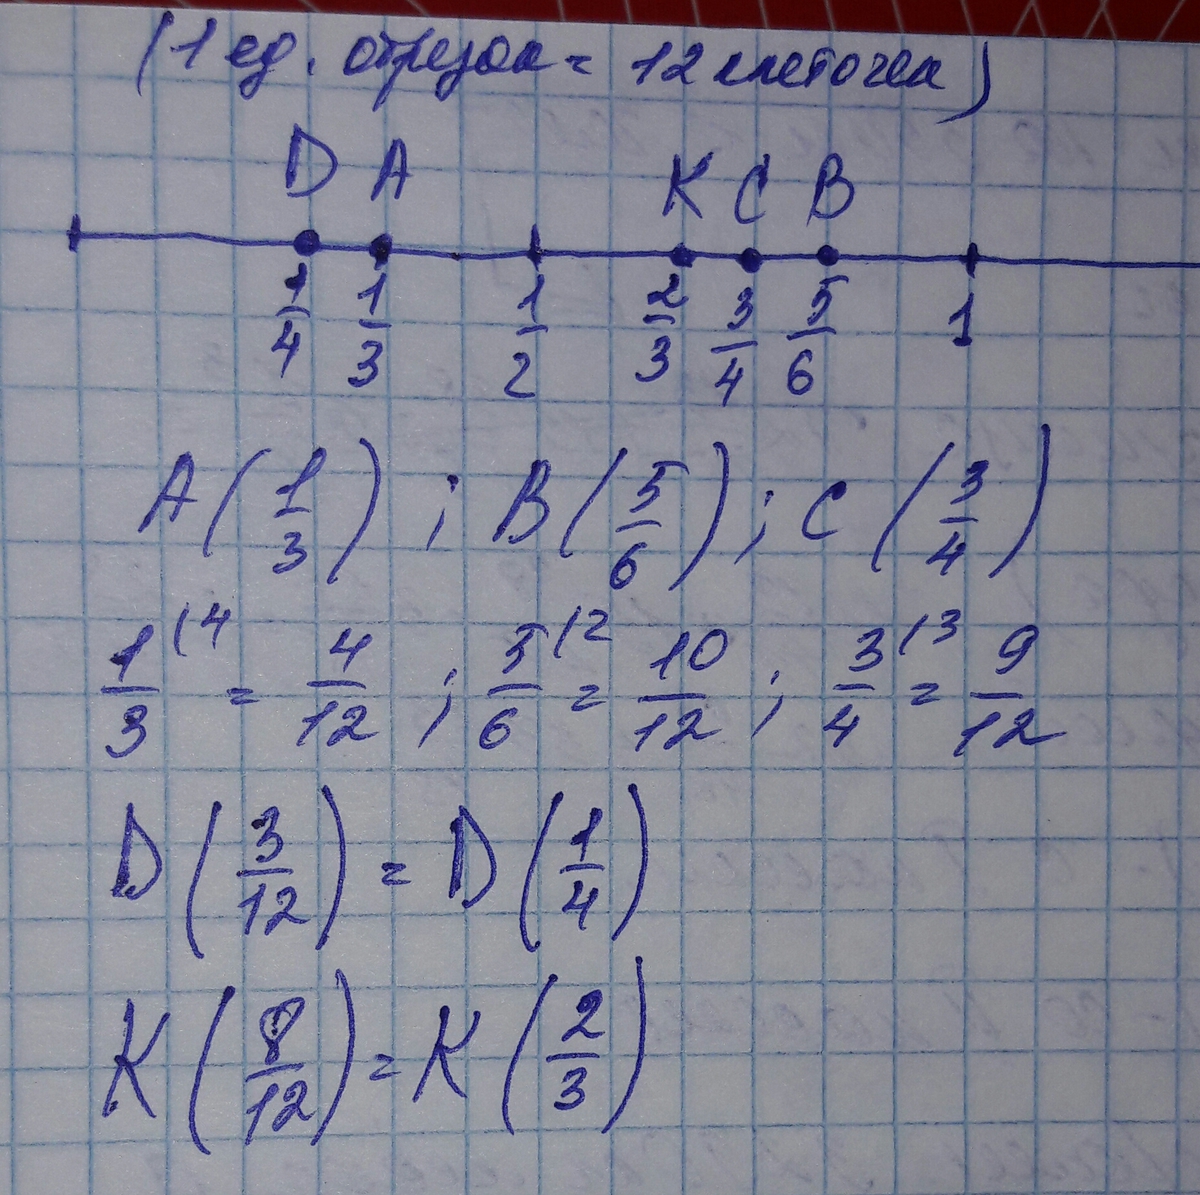 (1 ед. отрезок = 12 клеточек)
D A K C B
1/4 1/3 1/2 2/3 3/4 5/6 1
A(1/3) ; B(5/6) ; C(3/4)
1/3 (4 = 4/12 ; 5/6 (2 = 10/12 ; 3/4 (3 = 9/12
D(3/12) = D(1/4)
K(8/12) = K(2/3)